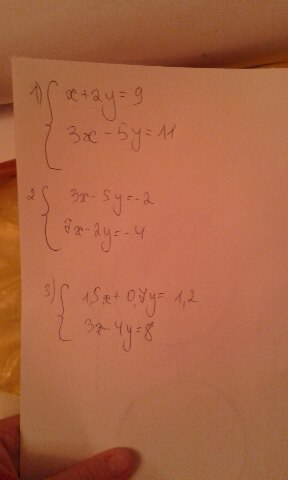 1) x+2y=9
3x-5y=11
2 3x-5y=-2
7x-2y=-4
3) 1,5x+0,7y=1,2
3x-4y=8